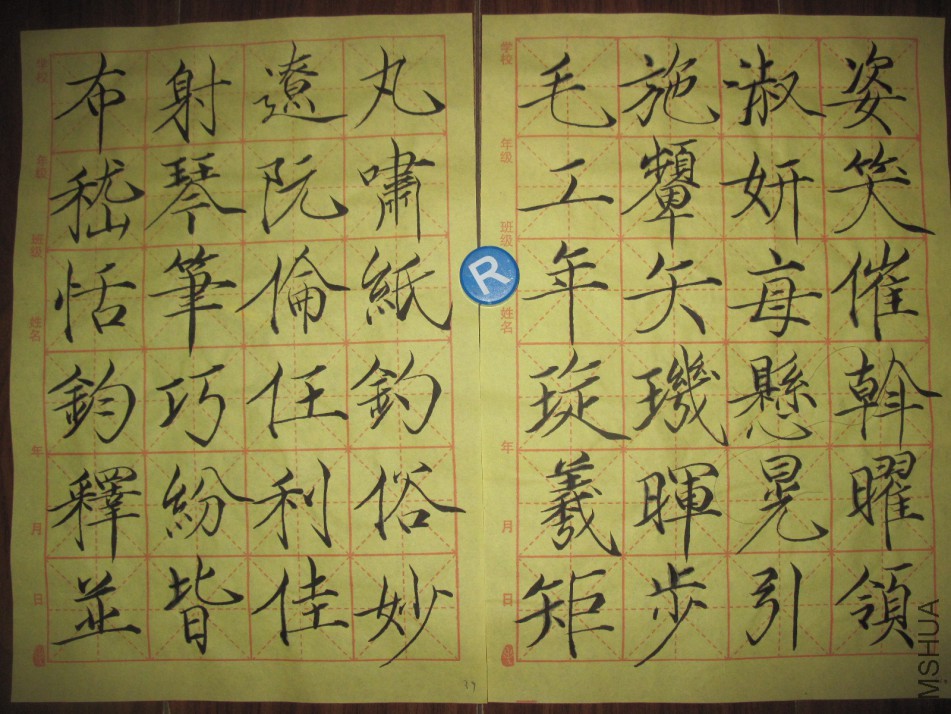 学校
年级
班级
姓名
年
月
日
布射遼丸
嵇琴阮嘯
恬筆倫紙
鈞巧任釣
釋紛利俗
並皆佳妙
学校
年级
班级
姓名
年
月
日
毛施淑姿
工顰妍笑
年矢毎催
琁璣懸斡
羲暉晃曜
矩步引領
R
MSHUA